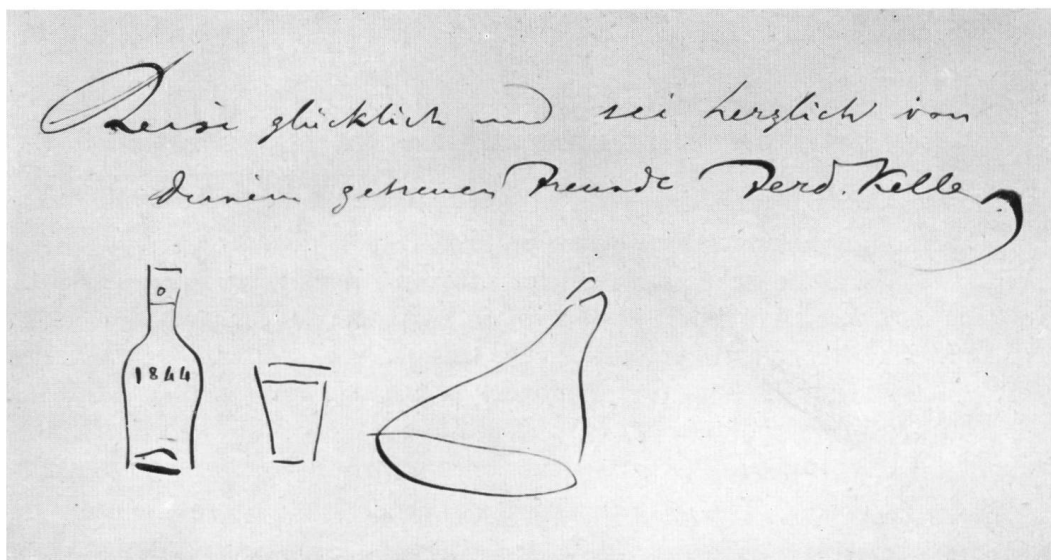 Reise glücklich und sei herzlich von
deinem getreuen Freunde Ferd. Keller
1844